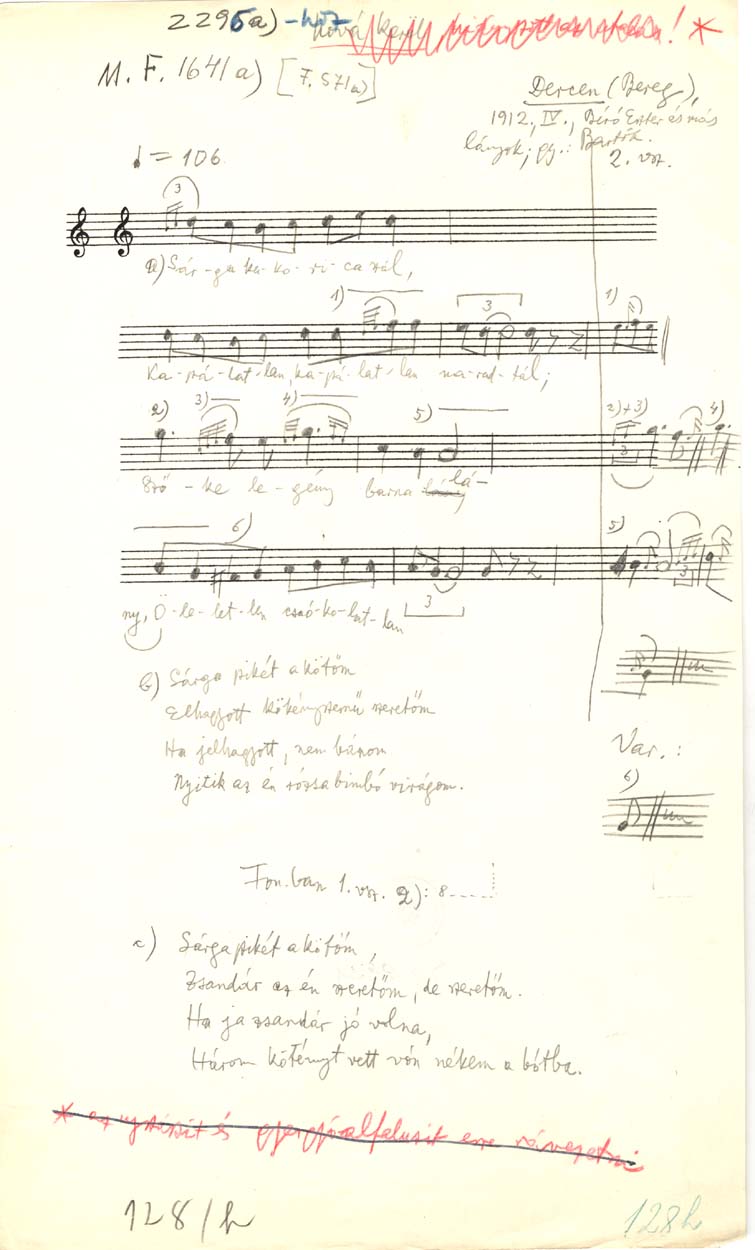 2295a) - hoz
M. F. 1641a) [F. 571a)]
Dercen (Bereg),
1912, IV., Bíró Eszter és más
lányok; gy.: Bartók.
2. vsz.
♩ = 106
3
a) Sár-ga ku-ko-ri-ca szál,
1) 3 1)
Ka-pá-lat-lan, ka-pá-lat-lan ma-rad-tál;
2) 3) 4) 5) 2)+3) 4)
Sző-ke le-gény barna lá-
6) 5)
ny, Ö-le-let-len csó-ko-lat-lan
3
b) Sárga pikét a kötőm
Elhagyott kökényszemű szeretőm
Ha jelhagyott, nem bánom
Nyitik az én rózsabimbó virágom.
Var.:
6)
Fon.ban 1. vsz. 2): 8
c) Sárga pikét a kötőm,
Zsandár az én szeretőm, de szeretőm.
Ha ja zsandár jó volna,
Három kötényt vett vón nékem a bótba.
* az és gyergyóalfalusit erre rávezetni
128/h
128h